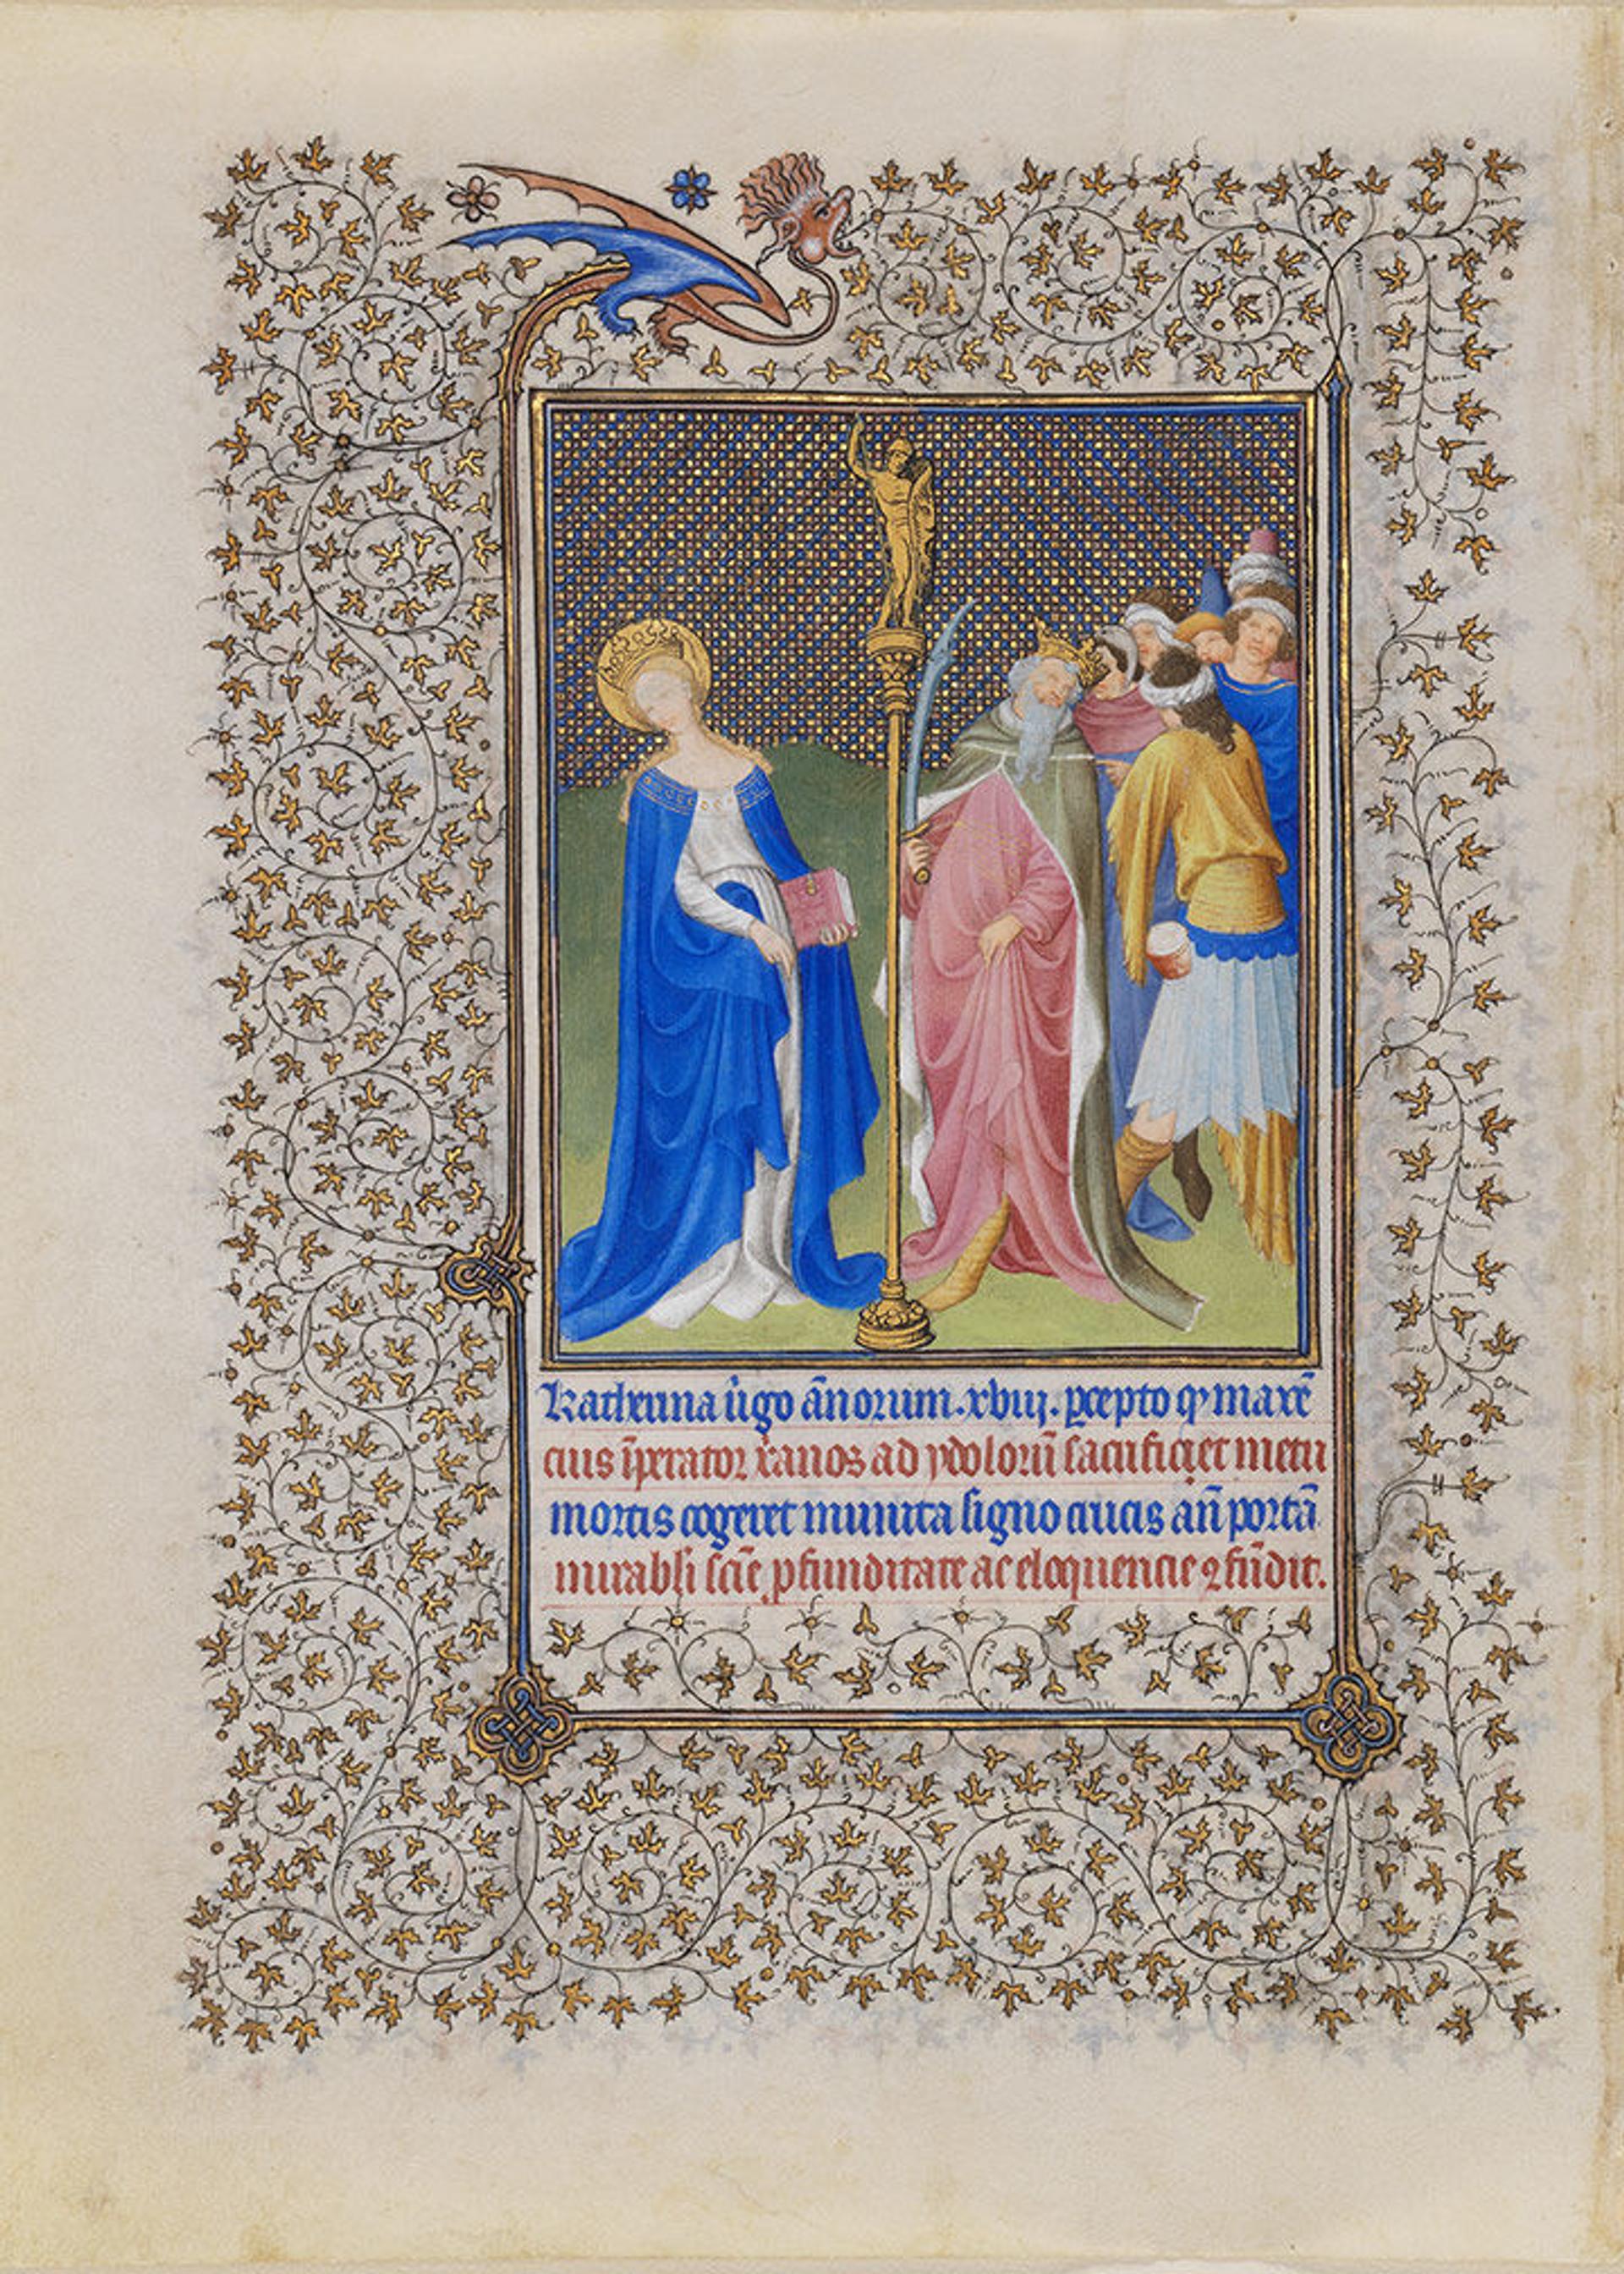 Katherina ũgo ãnorum .xbiij. p̃cepto qꝫ maxẽ
cius ĩperator x̃anos ad ydolorũ sacrificiet metu
mortis cogeret munita signo crucis añ portã
mirabłi sciẽ ꝓfunditate ac eloquencie ꝯfũdit.